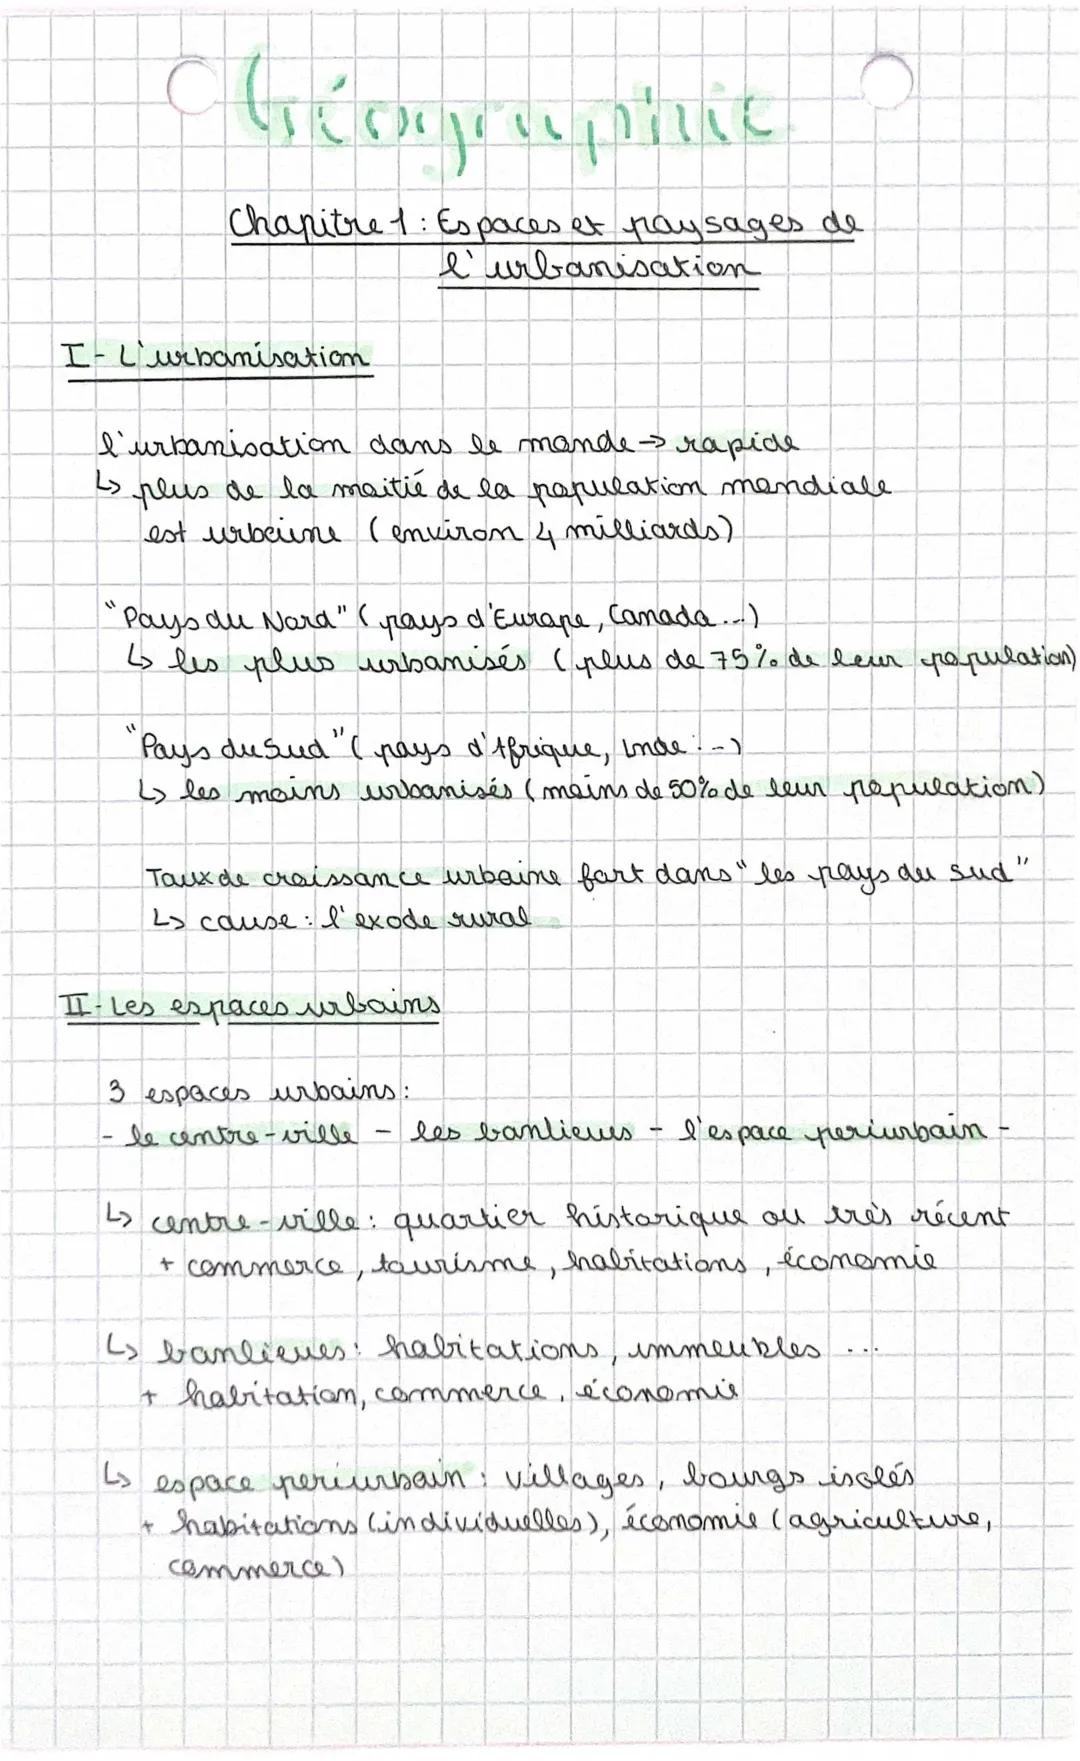 Géographie
Chapitre 1 : Espaces et paysages de
l'urbanisation
I - L'urbanisation
l'urbanisation dans le monde → rapide
↳ plus de la moitié de la population mondiale
est urbaine (environ 4 milliards)
"Pays du Nord" (pays d'Europe, Canada...)
↳ les plus urbanisés (plus de 75% de leur population)
"Pays du Sud" (pays d'Afrique, Inde...)
↳ les moins urbanisés (moins de 50% de leur population)
Taux de croissance urbaine fort dans "les pays du sud"
↳ cause : l'exode rural
II - Les espaces urbains
3 espaces urbains :
- le centre-ville - les banlieues - l'espace periurbain -
↳ centre-ville : quartier historique ou très récent
+ commerce, tourisme, habitations, économie
↳ banlieues : habitations, immeubles ...
+ habitation, commerce, économie
↳ espace periurbain : villages, bourgs isolés
+ habitations (individuelles), économie (agriculture,
commerce)